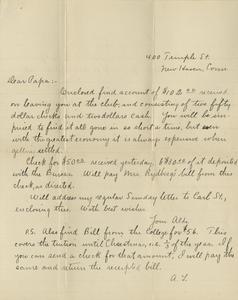 400 Temple St.
New Haven, Conn
Dear Papa:-
Enclosed find account of $102.00 received
on leaving you at the club, and consisting of two fifty
dollar checks and two dollars cash. You will be sur-
prised to find it all gone in so short a time, but even
with the greatest economy it is always expensive when
getting settled.
Check for $50.00 received yesterday, & $40.00 of it deposited
with the Bursar. Will pay Mrs. bill from this
check, as directed.
Will address my regular Sunday letter to Carl St.,
enclosing this. With best wishes
Your Aff.
P.S. Also find Bill from the College for $54. This
covers the tuition until Christmas, i.e. 1/3 of the year. If
you can send a check for that amount, I will pay the
same and return the receipted bill.